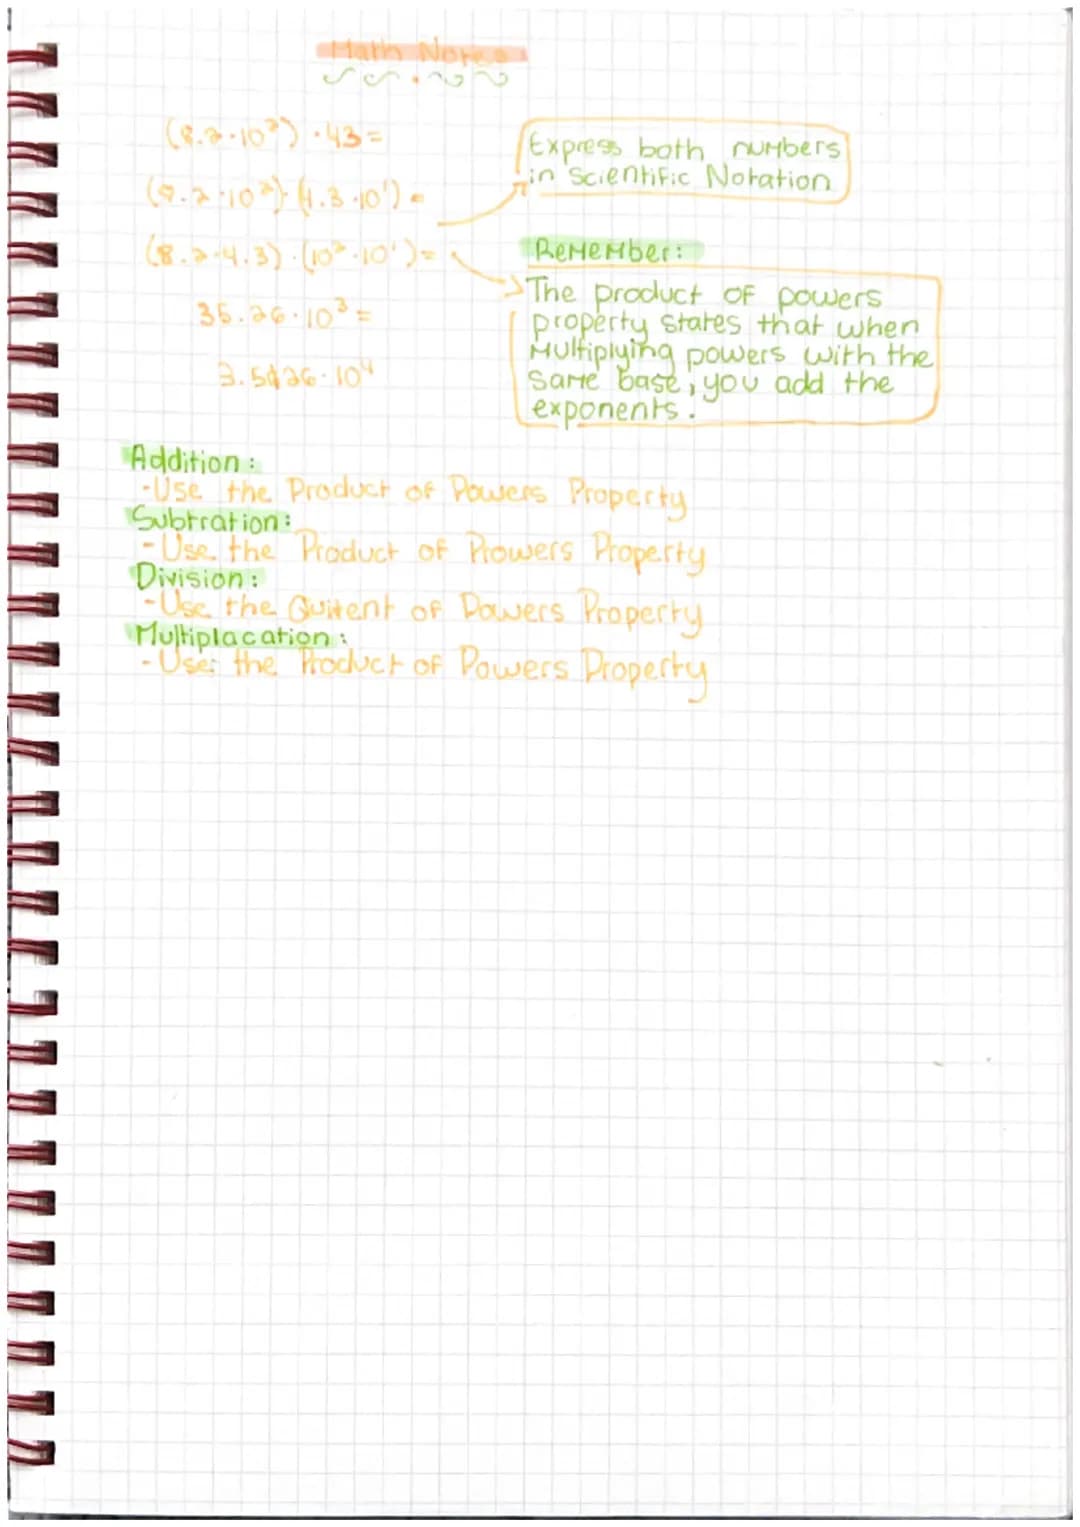 Math Notes
(8.2·10²)·43=
(8.2·10²)·(4.3·10¹)=
(8.2·4.3)·(10²·10¹)=
35.26·10³=
3.5426·10⁴
Express both numbers
in Scientific Notation
Remember:
The product of powers
property states that when
Multiplying powers with the
same base, you add the
exponents.
Addition:
-Use the Product of Powers Property
Subtration:
-Use the Product of Prowers Property
Division:
-Use the Quitent of Powers Property
Multiplacation:
-Use: the Product of Powers Property